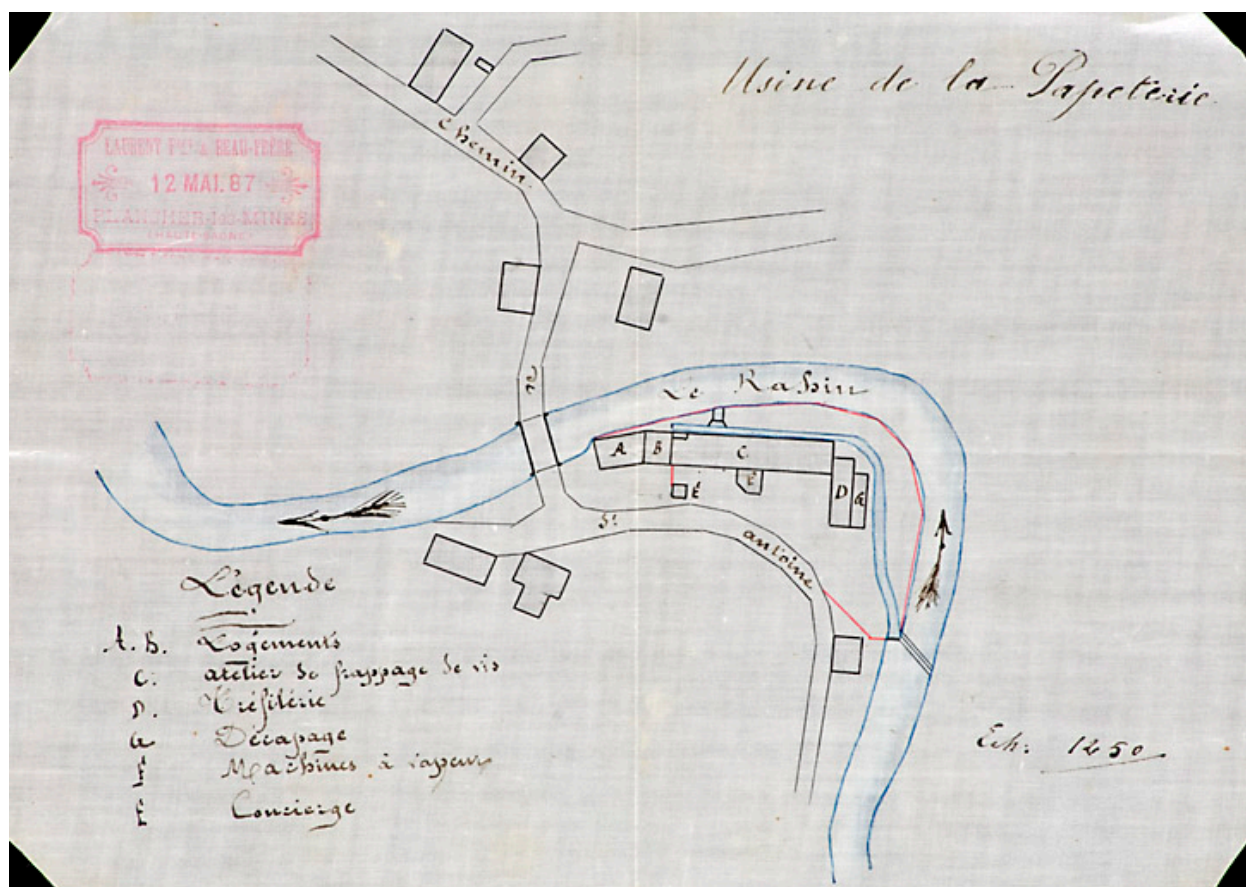 Usine de la Papeterie
LAURENT Frères & BEAU-FRÈRE
12 MAI. 87
PLANCHER-les-MINES
(HAUTE-SAÔNE)
Chemin
de
Le Rahin
A
B
C
D
G
F
É
St
antoine
Légende
A. B. Logements
C. atelier de frappage de vis
D. Tréfilerie
G Décapage
F Machines à vapeur
É Concierge
Éch: 1250